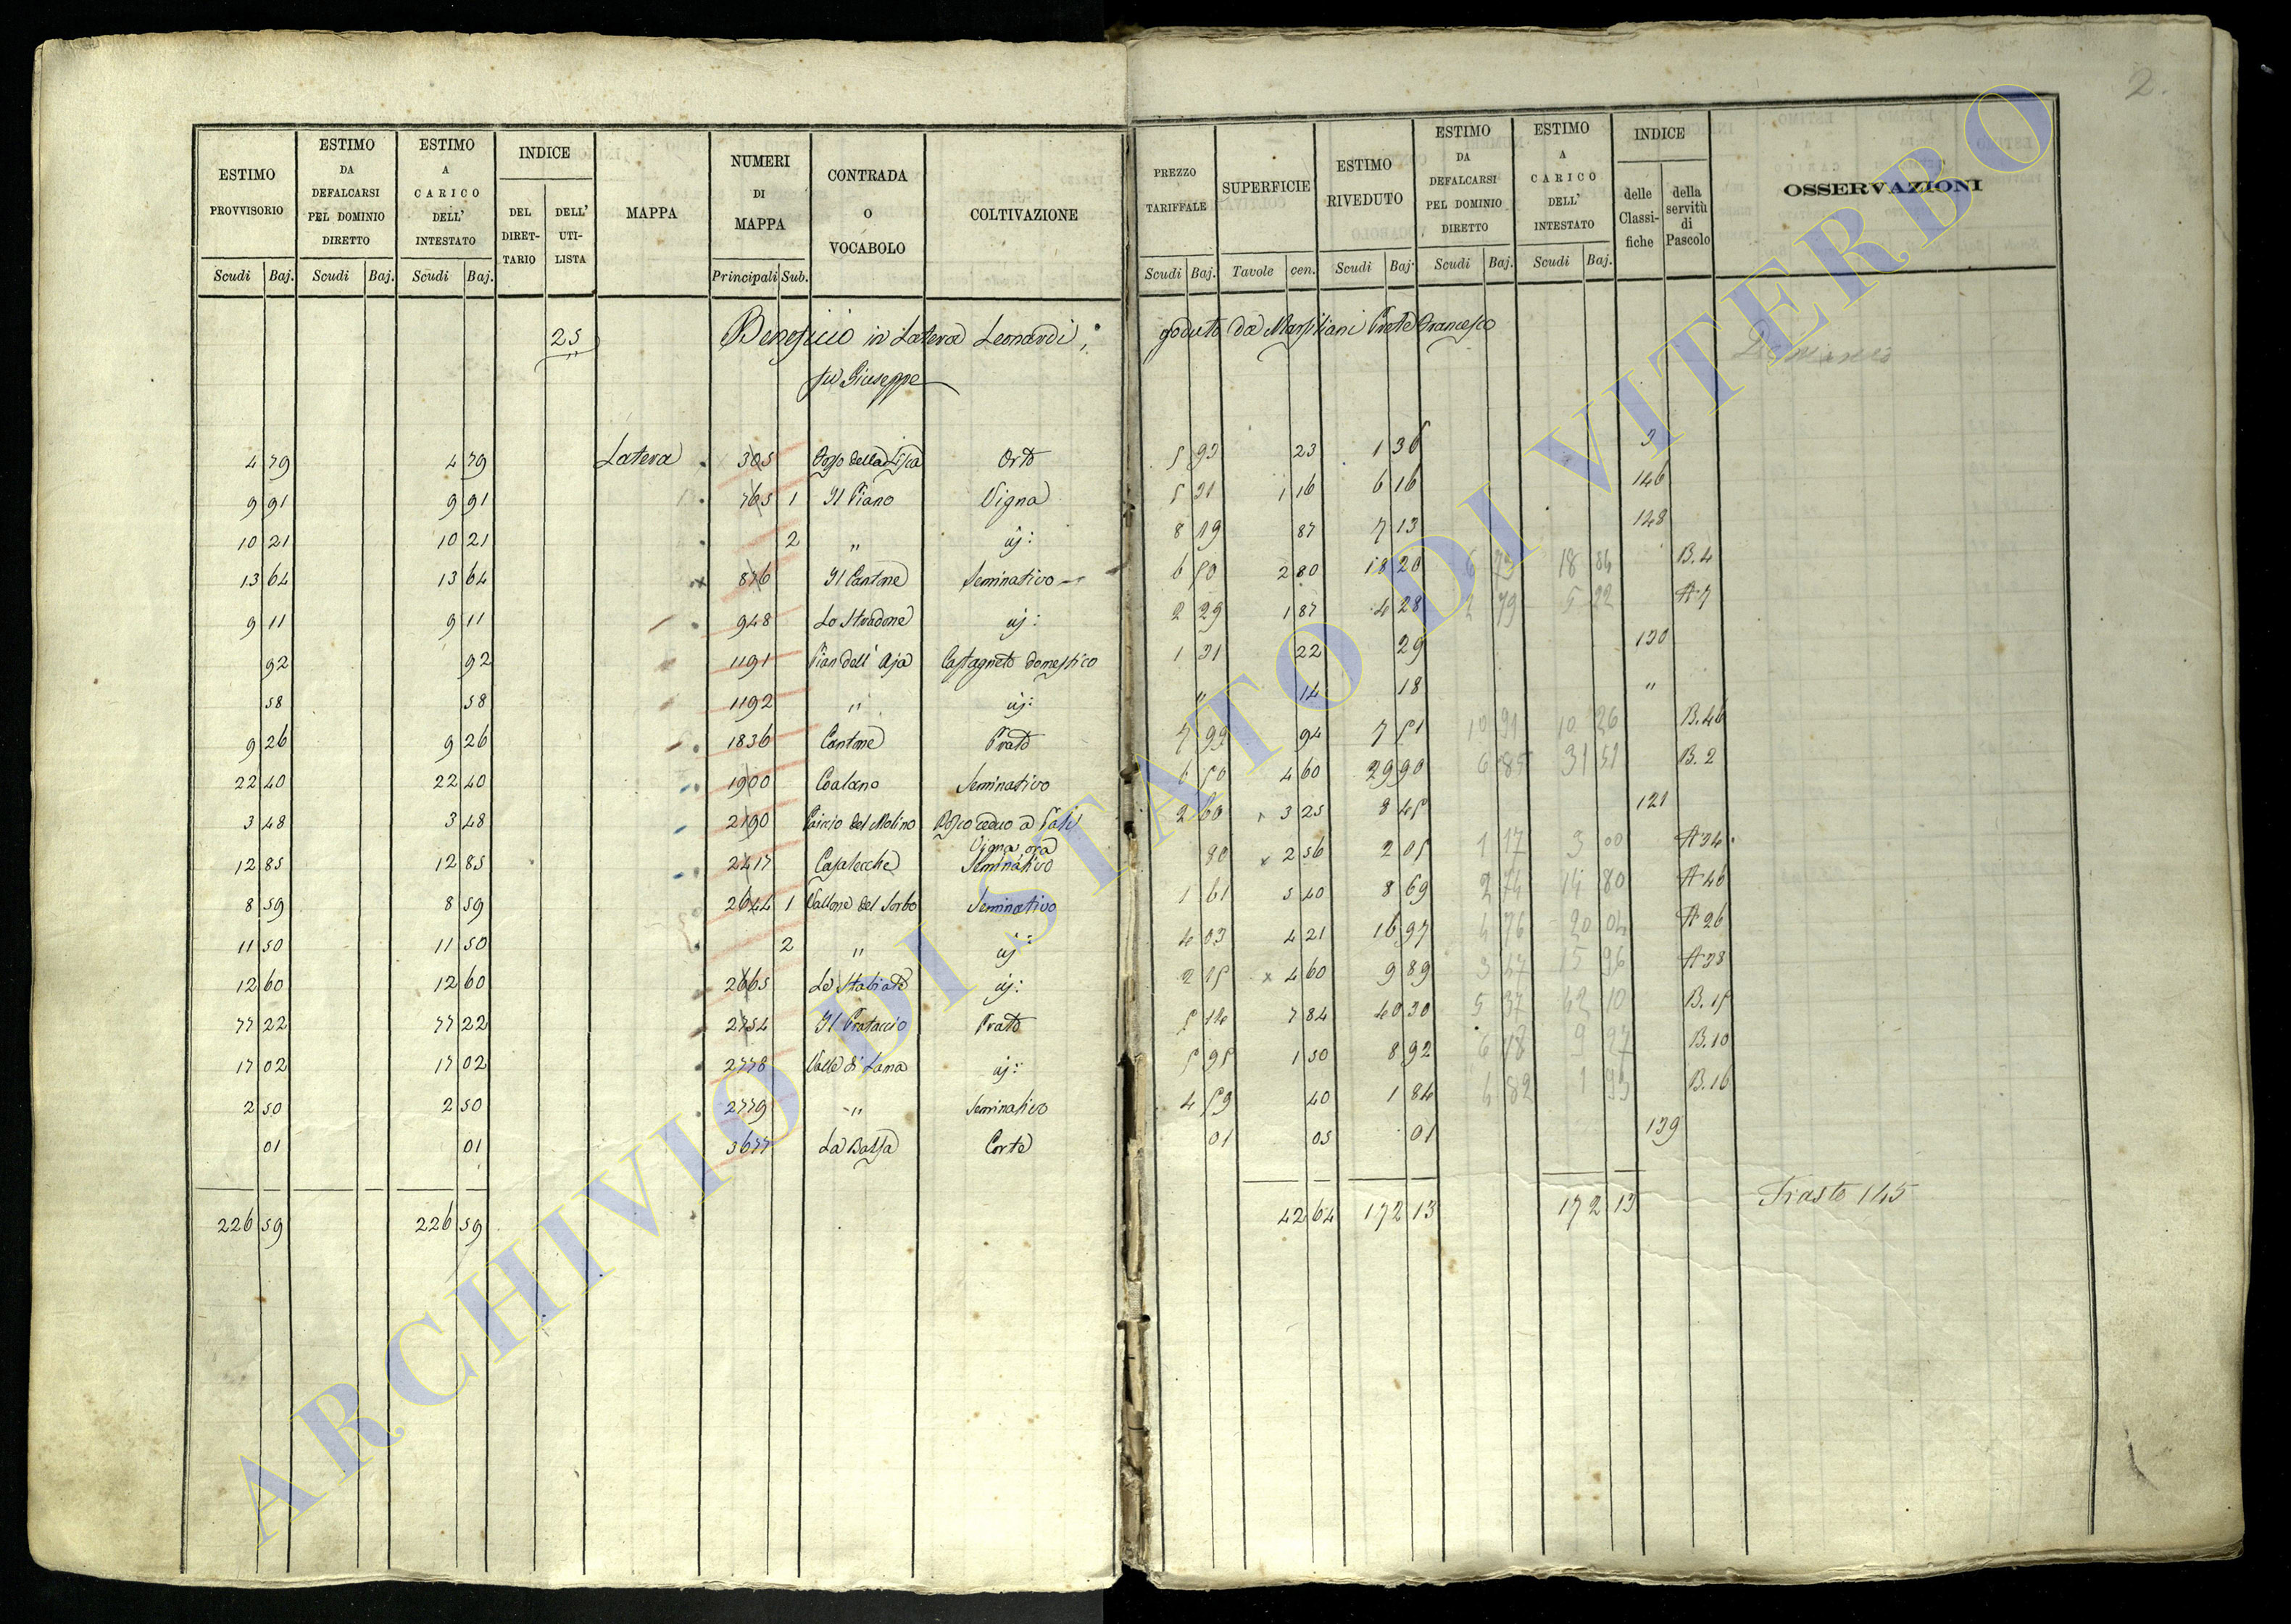 2.
ESTIMO PROVVISORIO Scudi Baj. | ESTIMO DA DEFALCARSI PEL DOMINIO DIRETTO Scudi Baj. | ESTIMO A CARICO DELL' INTESTATO Scudi Baj. | INDICE DEL DIRETTARIO DELL' UTILISTA | MAPPA | NUMERI DI MAPPA Principali Sub. | CONTRADA O VOCABOLO | COLTIVAZIONE | PREZZO TARIFFALE Scudi Baj. | SUPERFICIE Tavole cen. | ESTIMO RIVEDUTO Scudi Baj. | ESTIMO DA DEFALCARSI PEL DOMINIO DIRETTO Scudi Baj. | ESTIMO A CARICO DELL' INTESTATO Scudi Baj. | INDICE delle Classifiche della servitù di Pascolo | OSSERVAZIONI
25 Beneficio in Latera Leonardi, goduto da Marsiliani Prete Francesco
fu Giuseppe
4 79 4 79 Latera 305 Orto 5 93 23 1 36 3
9 91 9 91 765 1 Il Piano Vigna 5 31 1 16 6 16 146
10 21 10 21 2 " id: 8 19 87 7 13 148
13 64 13 64 876 Il Cantone Seminativo 6 50 2 80 18 20 B. 4
9 11 9 11 948 Lo Stradone id: 2 29 1 87 4 28 A 7
92 92 1191 Pian dell' Aja Castagneto domestico 1 31 22 29 130
58 58 1192 " id: " 14 18 "
9 26 9 26 1836 Cantone Prato 7 99 94 7 51 B. 46
22 40 22 40 1900 Seminativo 6 50 4 60 29 90 B. 2
3 48 3 48 2190 del Molino Bosco ceduo a Pali 2 60 3 25 8 45 121
12 85 12 85 2417 Casalecche Vigna ora Seminativo 80 2 56 2 05 A 34
8 59 8 59 2644 1 Vallone del Sorbo Seminativo 1 61 5 40 8 69 A 46
11 50 11 50 2 " id: 4 03 4 21 16 97 A 26
12 60 12 60 2665 id: 2 15 4 60 9 89 A 38
77 22 77 22 2754 Il Prataccio Prato 5 14 7 84 40 30 B. 15
17 02 17 02 2778 Valle di Lana id: 5 95 1 50 8 92 B. 10
2 50 2 50 2779 " Seminativo 4 59 40 1 84 B. 16
01 01 3677 La Bassa Corte 01 05 01 139
226 59 226 59 42 64 172 13 172 13 145
ARCHIVIO DI STATO DI VITERBO